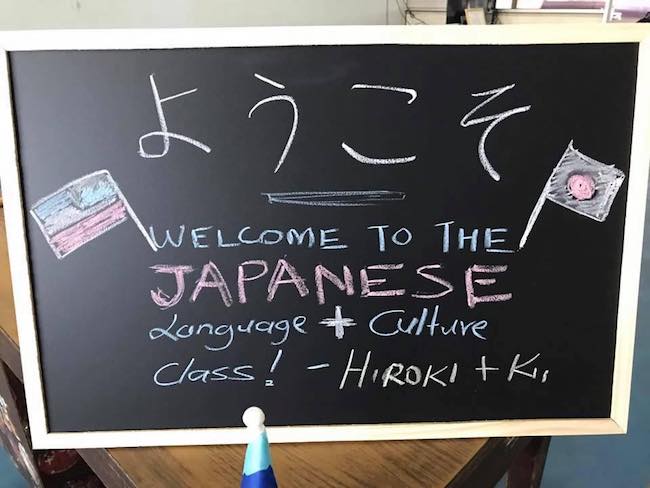 ようこそ
WELCOME TO THE
JAPANESE
Language + Culture
Class! - HIROKI + Kii